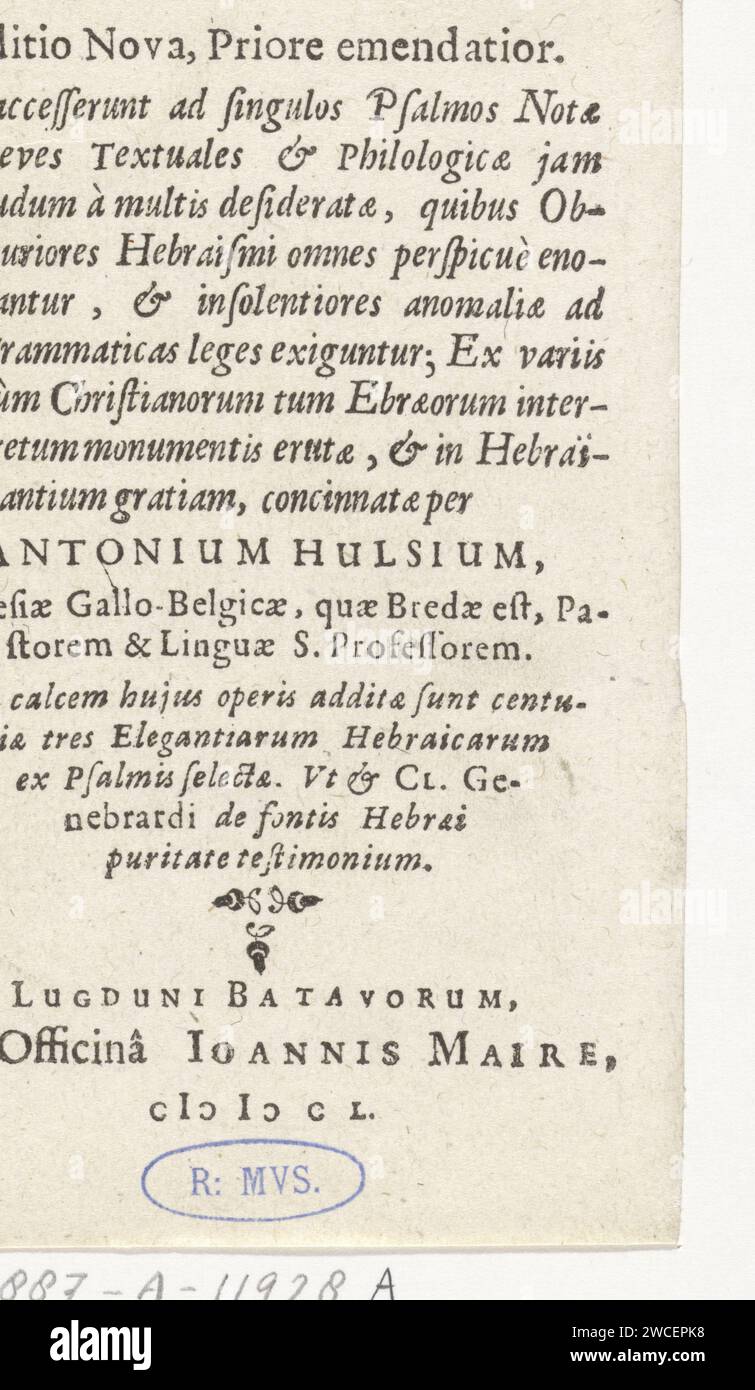 litio Nova, Priore emendatior.
accesserunt ad singulos Psalmos Notæ
eves Textuales & Philologicæ jam
udum à multis desideratæ, quibus Ob-
uriores Hebraismi omnes perspicuè eno-
antur, & insolentiores anomaliæ ad
rammaticas leges exiguntur; Ex variis
ùm Christianorum tum Ebræorum inter-
retum monumentis erutæ, & in Hebraï-
antium gratiam, concinnatæ per
ANTONIUM HULSIUM,
esiæ Gallo-Belgicæ, quæ Bredæ est, Pa-
storem & Linguæ S. Professorem.
calcem hujus operis additæ sunt centu-
iæ tres Elegantiarum Hebraicarum
ex Psalmis selectæ. Vt & CL. Ge-
nebrardi de fontis Hebræi
puritate testimonium.
LUGDUNI BATAVORUM,
Officinâ IOANNIS MAIRE,
cIↄ Iↄ c L.
R: MVS.
887-A-11928 A
alamy
alamy
alamy
Image ID: 2WCEPK8
www.alamy.com